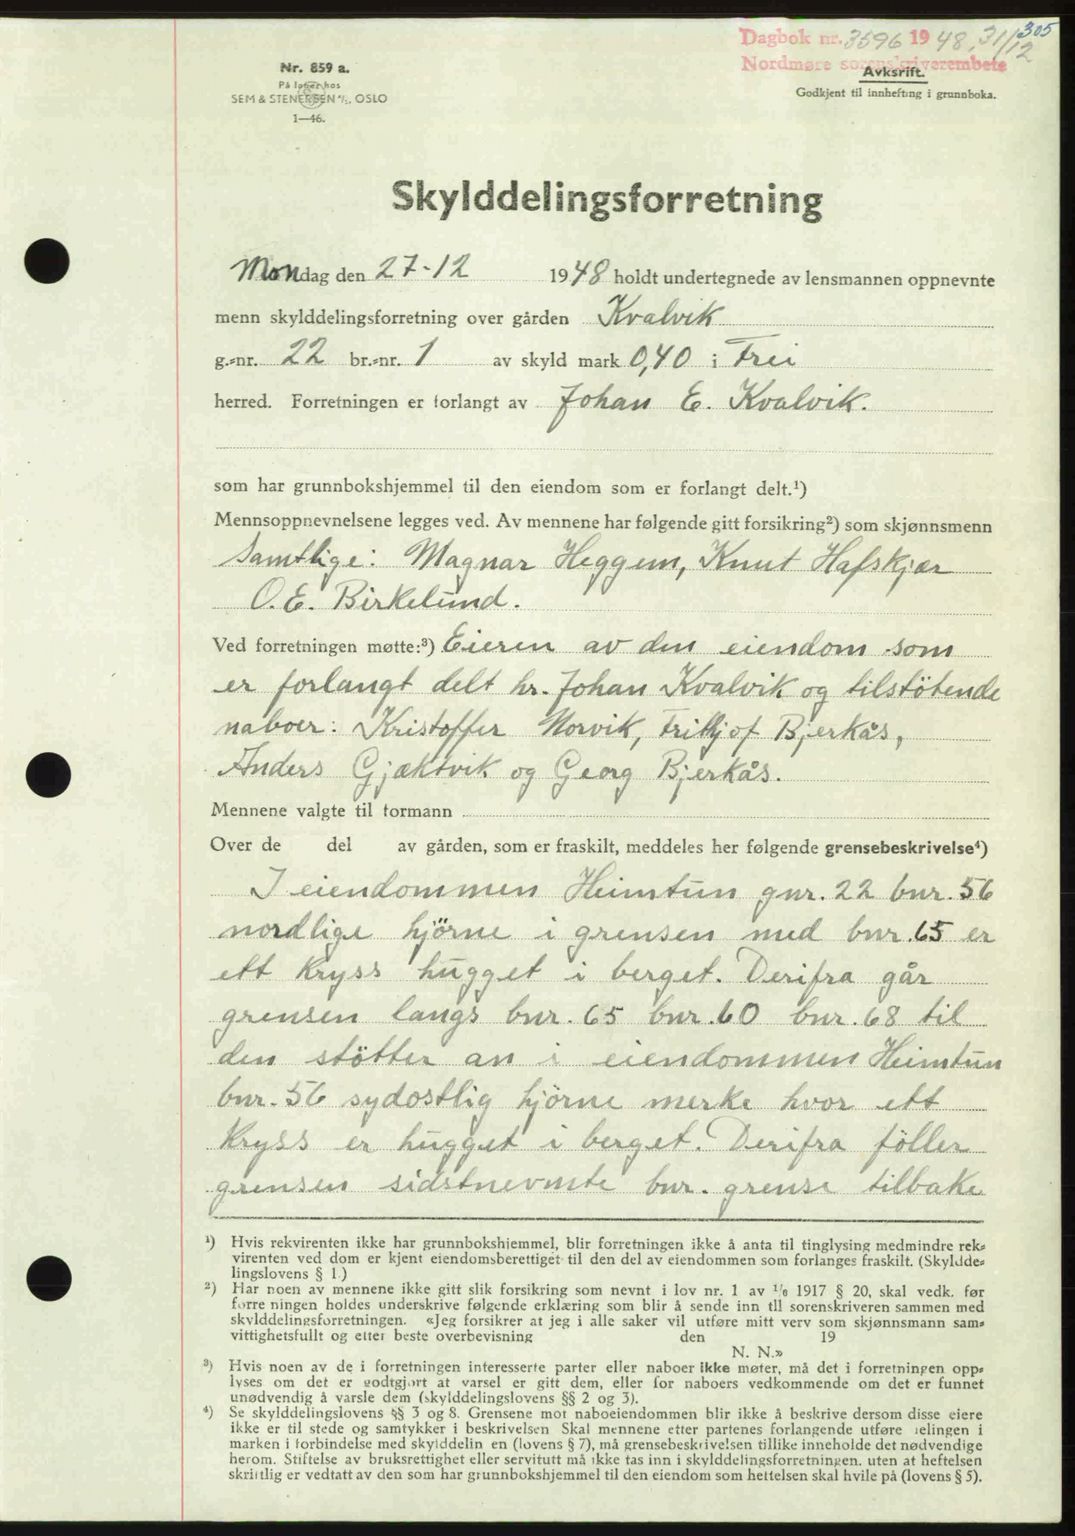 305
Dagbok nr. 3596 1948, 31/12
Nordmøre sorenskriverembete
Avksrift.
Godkjent til innhefting i grunnboka.
Nr. 859 a.
På lager hos
SEM & STENERSEN A/S, OSLO
1—46.
Skylddelingsforretning
Mondag den 27-12 1948 holdt undertegnede av lensmannen oppnevnte
menn skylddelingsforretning over gården Kvalvik
g.-nr. 22 br.-nr. 1 av skyld mark 0,40 i Frei
herred. Forretningen er forlangt av Johan E. Kvalvik.
som har grunnbokshjemmel til den eiendom som er forlangt delt.¹)
Mennsoppnevnelsene legges ved. Av mennene har følgende gitt forsikring²) som skjønnsmenn
Samtlige: Magnar Heggem, Knut Hafskjær
O. E. Birkelund.
Ved forretningen møtte:³) Eieren av den eiendom som
er forlangt delt hr. Johan Kvalvik og tilstötende
naboer: Kristoffer Norvik, Frithjof Bjerkås,
Anders Gjæktvik og Georg Bjerkås.
Mennene valgte til formann
Over de del av gården, som er fraskilt, meddeles her følgende grensebeskrivelse⁴)
I eiendommen Heimtun gnr. 22 bnr. 56
nordlige hjörne i grensen med bnr. 65 er
ett kryss hugget i berget. Derifra går
grensen langs bnr. 65 bnr. 60 bnr. 68 til
den stötter an i eiendommen Heimtun
bnr. 56 sydostlig hjörne merke hvor ett
kryss er hugget i berget. Derifra föller
grensen sidstnevnte bnr. grense tilbake
¹) Hvis rekvirenten ikke har grunnbokshjemmel, blir forretningen ikke å anta til tinglysing medmindre rek-
virenten ved dom er kjent eiendomsberettiget til den del av eiendommen som forlanges fraskilt. (Skyldde-
lingslovens § 1.)
²) Har noen av mennene ikke gitt slik forsikring som nevnt i lov nr. 1 av ¹/₆ 1917 § 20, skal vedk. før
forretningen holdes underskrive følgende erklæring som blir å sende inn til sorenskriveren sammen med
skylddelingsforretningen. «Jeg forsikrer at jeg i alle saker vil utføre mitt verv som skjønnsmann sam-
vittighetsfullt og etter beste overbevisning den 19
N. N.»
³) Hvis noen av de i forretningen interesserte parter eller naboer ikke møter, må det i forretningen opp-
lyses om det er godtgjort at varsel er gitt dem, eller for naboers vedkommende om det er funnet
unødvendig å varsle dem (skylddelingslovens §§ 2 og 3).
⁴) Se skylddelingslovens §§ 3 og 8. Grensene mot naboeiendommen blir ikke å beskrive dersom disse eiere
ikke er til stede og samtykker i beskrivelsen Skal mennene etter partenes forlangende utføre delingen i
marken i forbindelse med skylddelingen (lovens § 7), må grensebeskrivelsen tillike inneholde det nødvendige
herom. Stiftelse av bruksrettighet eller servitutt må ikke tas inn i skylddelingsforretningen, uten at heftelsen
skriftlig er vedtatt av den som har grunnbokshjemmel til den eiendom som heftelsen skal hvile på (lovens § 5).